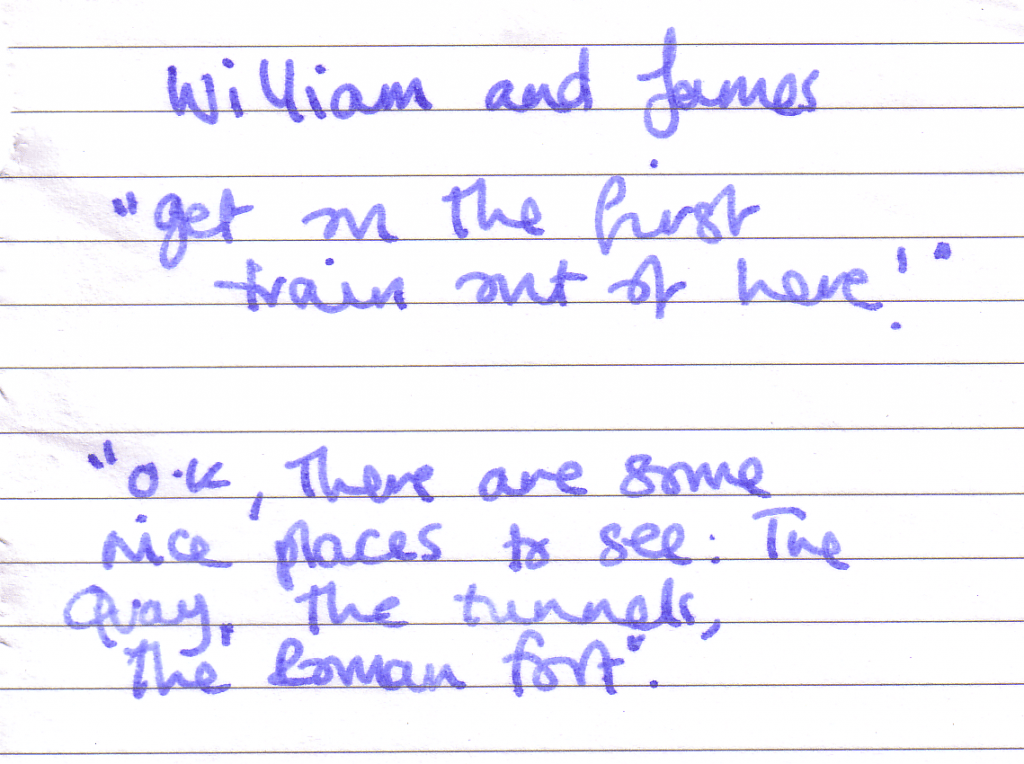 William and James
"get on the first
train out of here!"
"O.K, there are some
nice places to see: The
Quay, the tunnels,
the Roman fort".